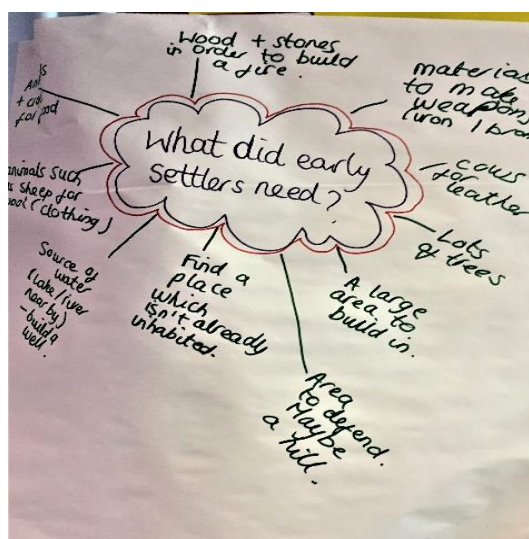 What did early
settlers need?
Wood + stones
in order to build
a fire.
to make
(iron /
cows
for
Lots
of trees
A large
area to
build in.
Area
to defend.
Maybe
a hill.
Find a
place
which
isn't already
inhabited.
Source of
water
(lake/river
nearby)
- build a
well.
animals such
sheep for
(clothing)
+
for